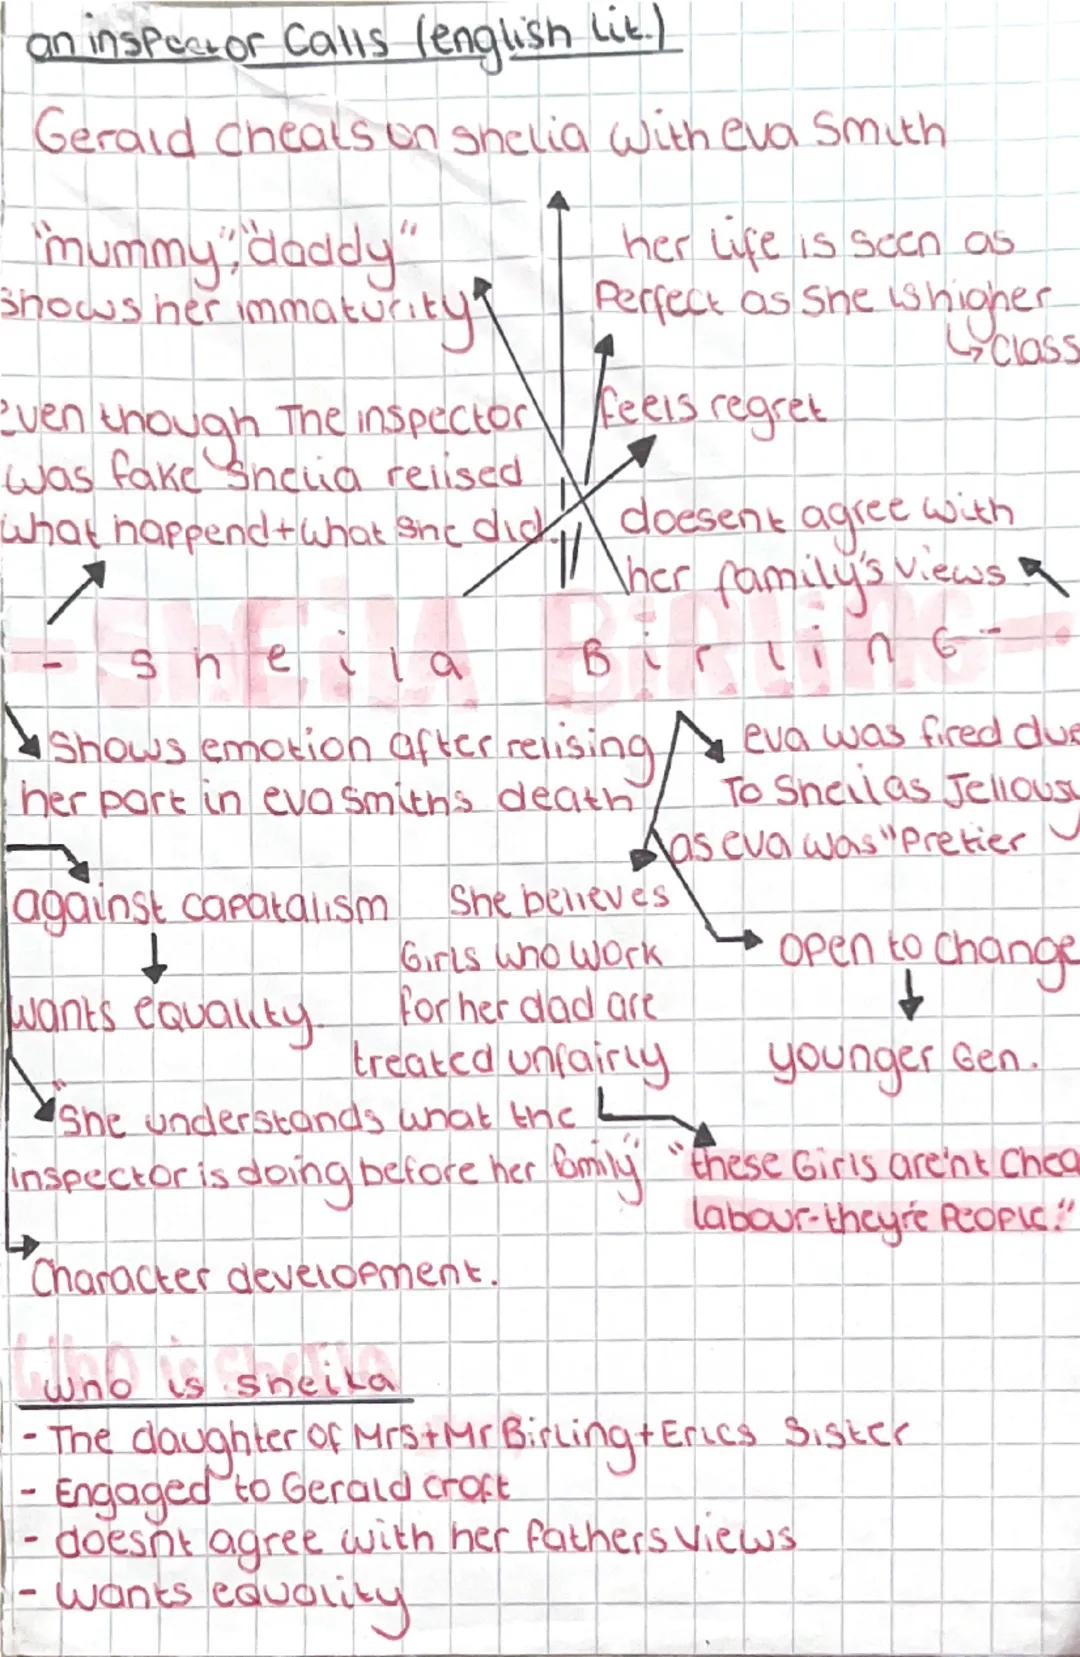 an inspector Calls (english Lit.)
Gerald cheats on shelia with eva Smith
"mummy", "daddy"
shows her immaturity
her life is seen as
Perfect as she is higher
↳ class
even though The inspector
was fake Shelia relised
what happend + what she did.
feels regret
doesent agree with
her family's views
- Sheila Birling -
- Sheila Birling -
Shows emotion after relising
her part in eva smiths death
eva was fired due
To Sheilas Jellousy
as eva was "Pretier
against capatalism
wants equality.
She believes
Girls who work
for her dad are
treated unfairly
open to change
younger Gen.
"She understands what the
inspector is doing before her family"
"these Girls are'nt Chea
labour-they're People."
Character development.
Who is sheila
who is sheila
- The daughter of Mrs + Mr Birling + Erics Sister
- Engaged to Gerald croft
- doesnt agree with her fathers views
- wants equality